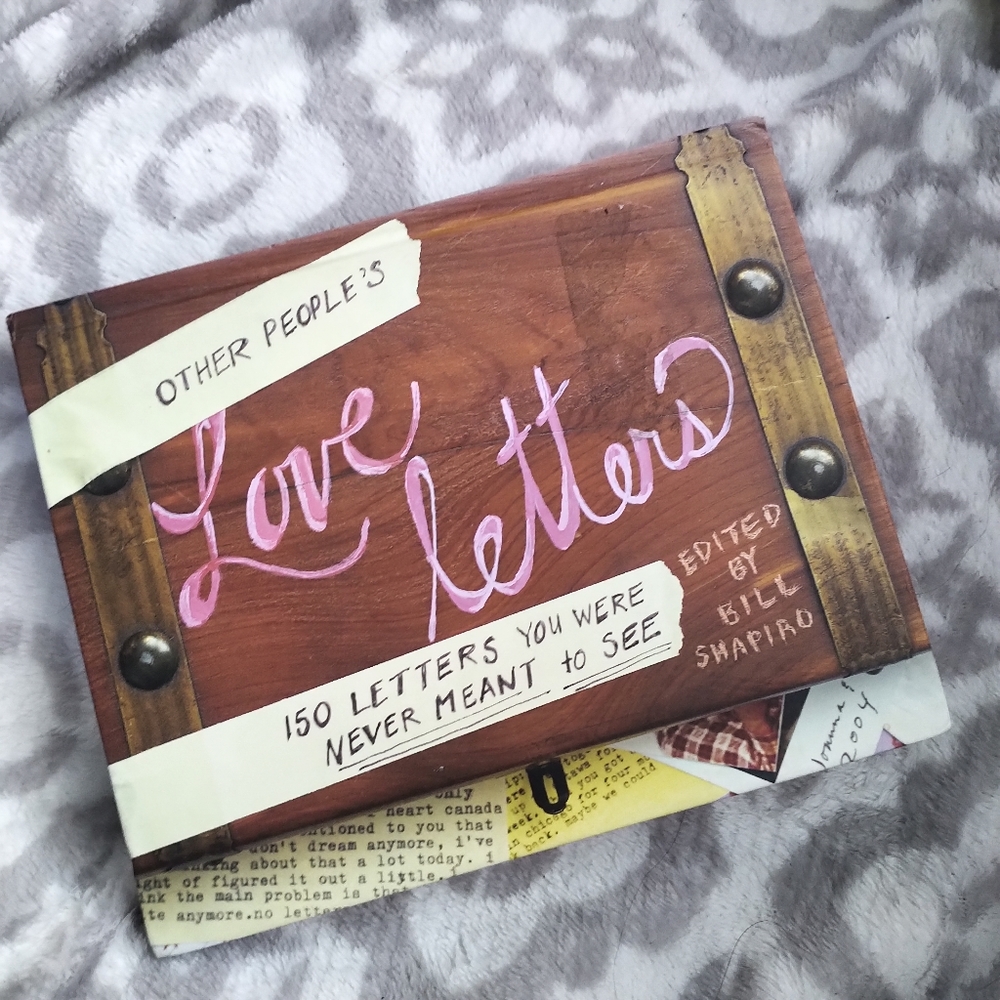 OTHER PEOPLE'S
Love
letters
EDITED
BY
BILL
SHAPIRO
150 LETTERS YOU WERE
NEVER MEANT to SEE
only
heart canada
to you that
don't dream anymore, i've
about that a lot today. i
of figured it out a little. i
the main problem is that
anymore.no
you got
for four
back. maybe we could
Joanna &
2004